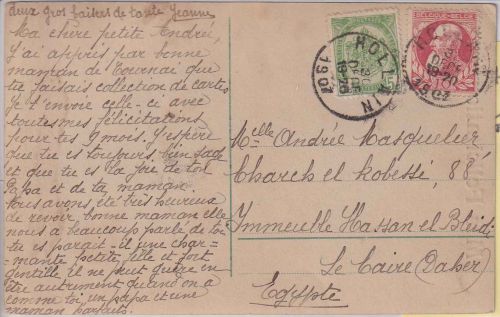 deux gros baisers de tante Jeanne
Ma chère petite Andrée,
J'ai appris par bonne
maman de Tournai que
tu faisais collection de cartes
Je t'envoie celle-ci avec
toutes mes félicitations
pour tes 9 mois. J'espère
que tu es toujours bien sage
et que tu es la joie de ton
Papa et de ta maman.
Nous avons été très heureux
de revoir bonne maman elle
nous a beaucoup parlé de toi
tu es paraît-il une char-
mante petite fille et fort
gentille il ne peut guère en
être autrement quand on a
comme toi un papa et une
maman parfaits.
BELGIQUE-BELGIË
HOLLAIN
DEC
18-20
1907
Melle Andrée Masquelier
Chareh el Kobessé, 88
Immeuble Hassan el Bleidi
Le Caire (Daher)
Egypte